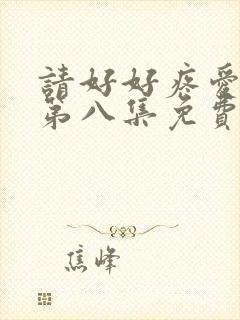 請好好疼愛
第八集免費
焦峰